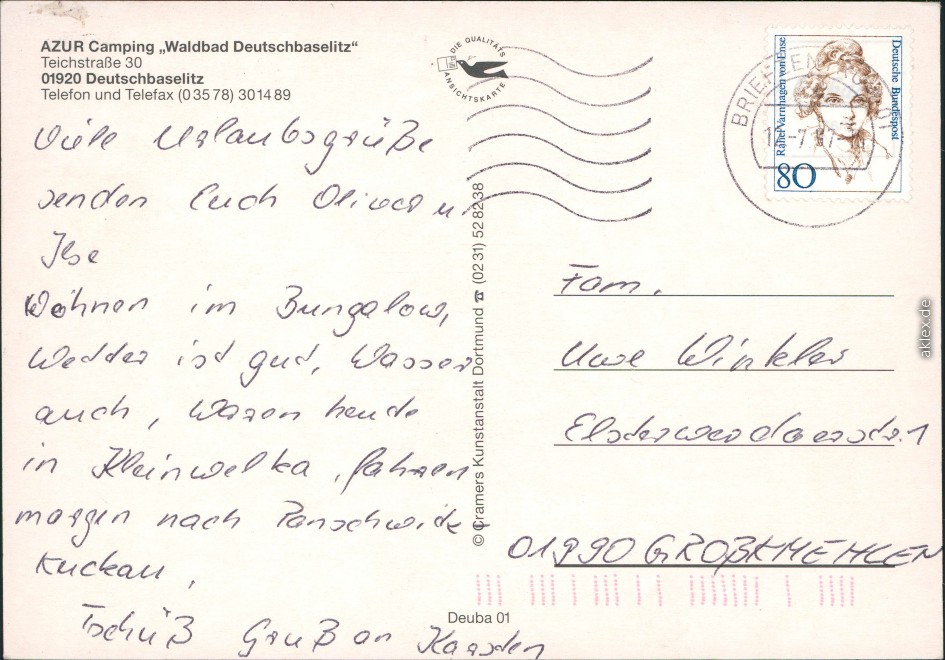 AZUR Camping „Waldbad Deutschbaselitz“
Teichstraße 30
01920 Deutschbaselitz
Telefon und Telefax (0 35 78) 3014 89
DIE QUALITÄTS
ANSICHTSKARTE
Viele Urlaubsgrüße
senden Euch Oliver u.
Ilse
Wohnen im Bungalow,
Wetter ist gut, Wasser
auch, waren heute
in Kleinwelka, fahren
morgen nach Panschwitz
Kuckau,
Tschüß Gruß an Karsten
© Cramers Kunstanstalt Dortmund ☎ (02 31) 52 82 38
Deuba 01
BRIEFZENTRUM
Rahel Varnhagen von Ense
Deutsche Bundespost
80
Fam.
Uwe Winkler
Elsterwerdaerstr. 1
01990 GROßKMEHLEN
aklex.de